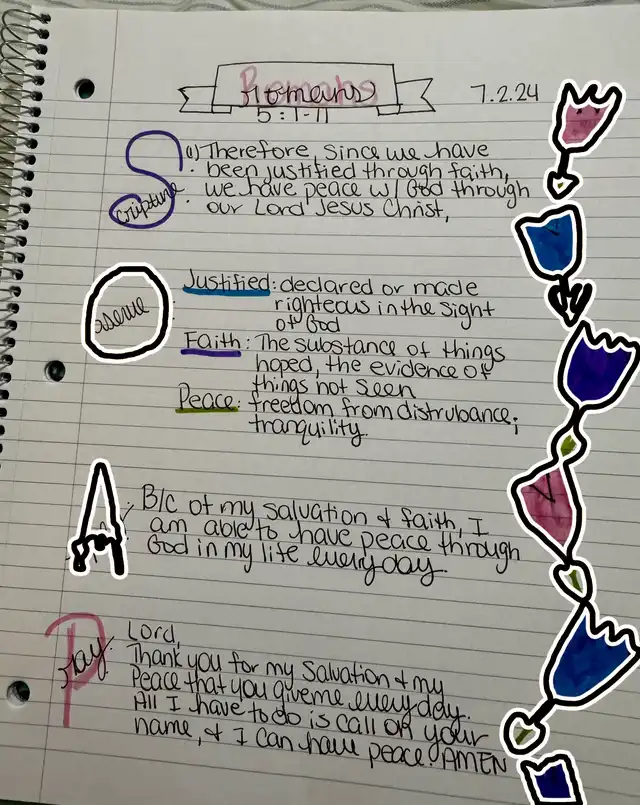 Romans
5:1-11
7.2.24
Scripture
(1) Therefore, since we have
been justified through faith,
we have peace w/ God through
our Lord Jesus Christ,
Justified: declared or made
righteous in the sight
of God
Faith: The substance of things
hoped, the evidence of
things not seen
Peace: freedom from distrubance;
tranquility
B/C of my salvation & faith, I
am able to have peace through
God in my life everyday.
Pray
Lord,
Thank you for my Salvation & my
Peace that you give me everyday.
All I have to do is call on your
name, & I can have peace! AMEN